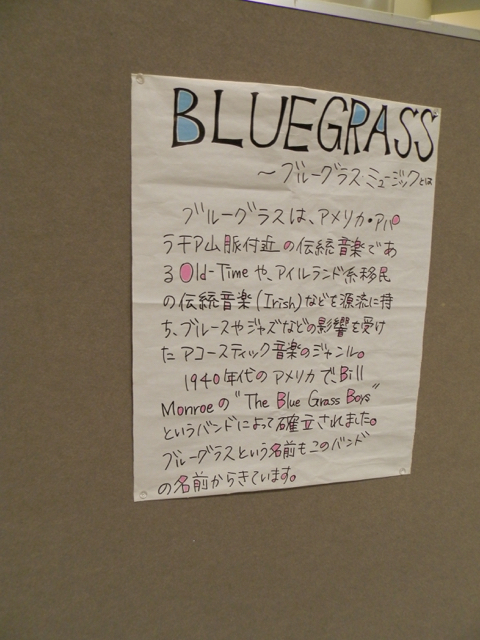 BLUEGRASS
～ブルーグラスミュージックとは
ブルーグラスは、アメリカ・アパ
ラチア山脈付近の伝統音楽であ
るOld-Timeや、アイルランド系移民
の伝統音楽(Irish)などを源流に持
ち、ブルースやジャズなどの影響を受け
たアコースティック音楽のジャンル。
1940年代のアメリカで、Bill
Monroeの"The Blue Grass Boys"
というバンドによって確立されました。
ブルーグラスという名前もこのバンド
の名前からきています。